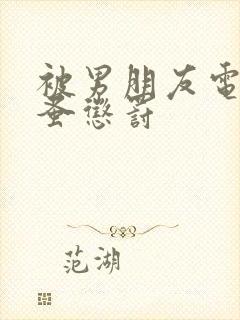 被男朋友電
蚤懲罰
范湖